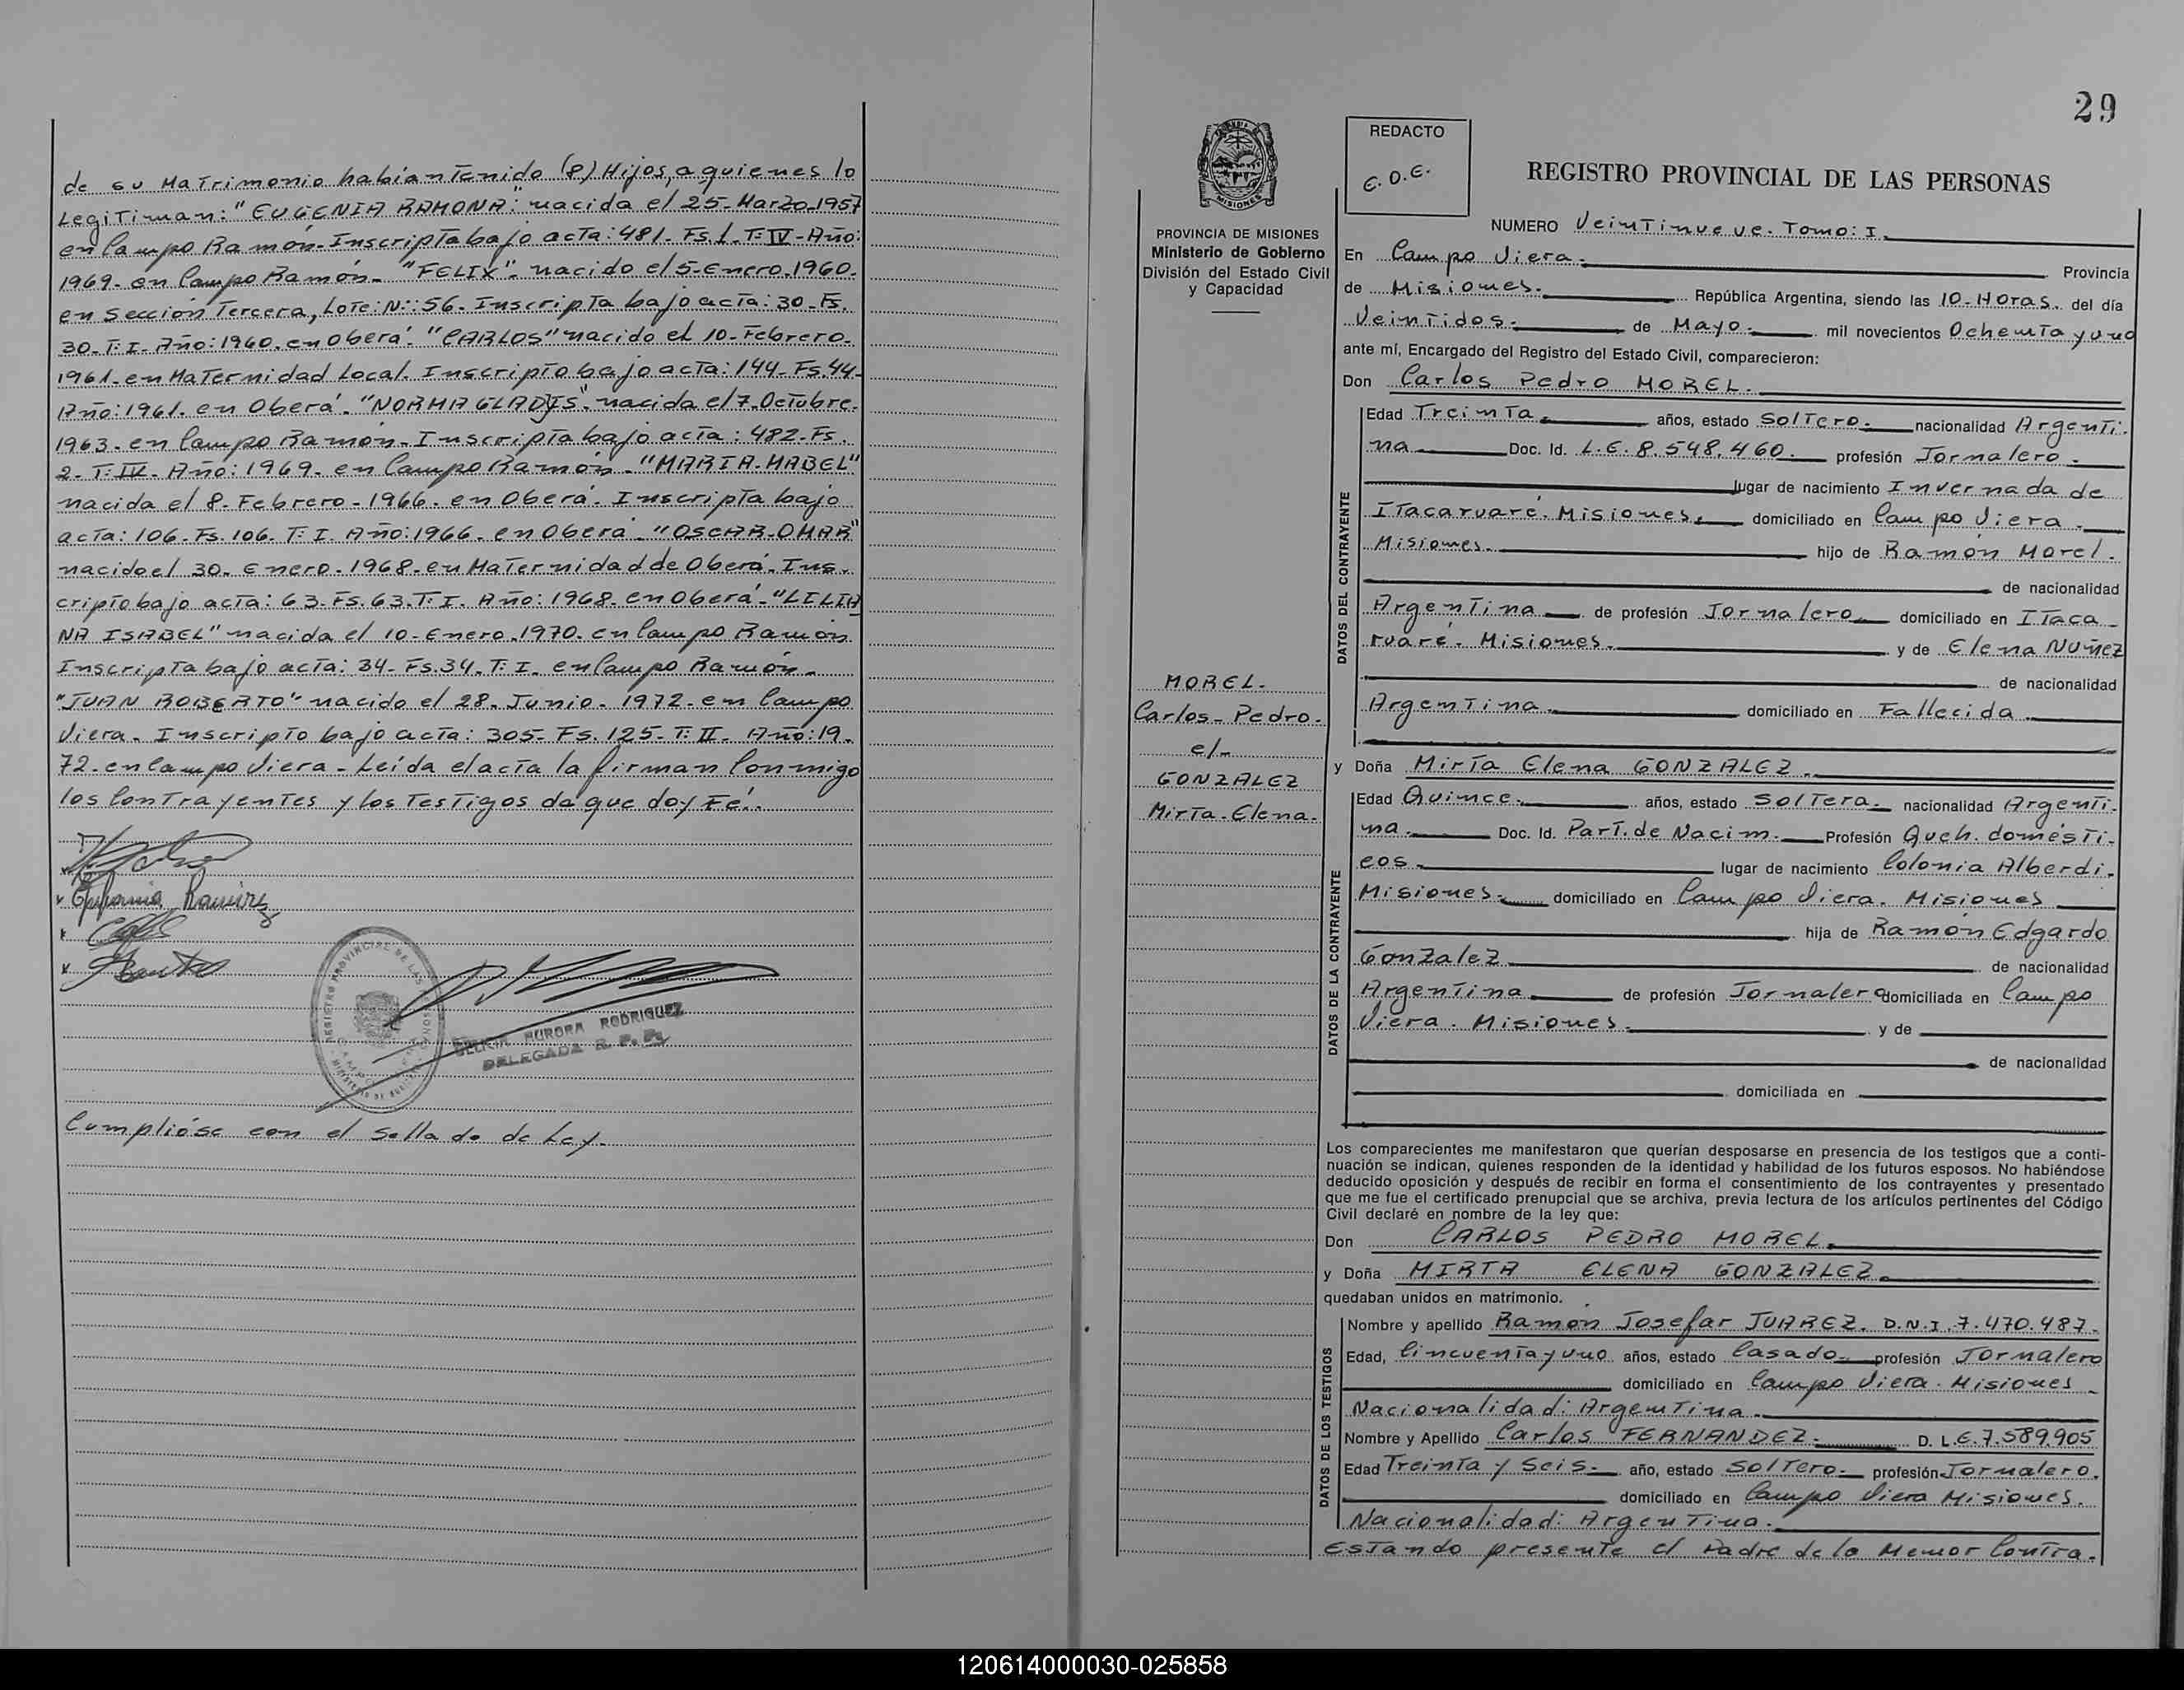 de su Matrimonio habían Tenido (8) Hijos, a quienes lo
LegiTiman: "EUGENIA RAMONA": nacida el 25-Marzo-1957
en Campo Ramón-Inscripta bajo acta: 481. Fs. 1. T: IV-Año:
1969- en Campo Ramón- "FELIX"- nacido el 5-Enero.1960.
en Sección Tercera, Lote: Nº: 56. Inscripta bajo acta: 30-Fs.
30-T: I. Año: 1960. en Oberá. "CARLOS" nacido el 10-Febrero-
1961-en Maternidad Local. Inscripto bajo acta: 144-Fs.44-
Año: 1961. en Oberá. "NORMA GLADYS". nacida el 7.Octubre.
1963-en Campo Ramón-Inscripta bajo acta: 482-Fs.
2-T: IV. Año: 1969-en Campo Ramón-"MARIA-MABEL"
nacida el 8-Febrero-1966-en Oberá. Inscripta bajo
acta: 106-Fs. 106. T: I. Año: 1966-en Oberá. "OSCAR-OMAR"
nacido el 30-Enero-1968-en Maternidad de Oberá-Ins.
cripto bajo acta: 63-Fs.63.T: I. Año: 1968. en Oberá-"LILIA
NA ISABEL" nacida el 10-Enero.1970-en Campo Ramón
Inscripta bajo acta: 34-Fs.34.T: I. en Campo Ramón-
"JUAN ROBERTO" nacido el 28-Junio-1972-en Campo
Viera-Inscripto bajo acta: 305-Fs. 125-T: II. Año: 19-
72-en Campo Viera-Leída el acta la firman Conmigo
los Contrayentes y los Testigos de que doy Fé.
Epifania Ramirez
REGISTRO PROVINCIAL DE LAS PERSONAS
AURORA RODRIGUEZ
DELEGADA R. P. P.
Cumplióse con el Sellado de Ley.
29
REDACTO
E.O.E.
REGISTRO PROVINCIAL DE LAS PERSONAS
MISIONES
PROVINCIA DE MISIONES
Ministerio de Gobierno
División del Estado Civil
y Capacidad
MOREL-
Carlos-Pedro-
c/-
GONZALEZ
Mirta-Elena-
NUMERO Veintinueve. Tomo: I.
En Campo Viera- Provincia
de Misiones- República Argentina, siendo las 10-Horas. del día
Veintidos- de Mayo- mil novecientos Ochenta y uno
ante mí, Encargado del Registro del Estado Civil, comparecieron:
Don Carlos Pedro MOREL.
DATOS DEL CONTRAYENTE
Edad Treinta- años, estado Soltero- nacionalidad Argenti-
na- Doc. Id. L.E. 8.548.460. profesión Jornalero-
lugar de nacimiento Invernada de
Itacaruaré. Misiones. domiciliado en Campo Viera-
Misiones- hijo de Ramón Morel.
de nacionalidad
Argentina- de profesión Jornalero domiciliado en Itaca-
ruaré- Misiones. y de Elena Nuñez
de nacionalidad
Argentina- domiciliado en Fallecida.
y Doña Mirta Elena GONZALEZ.
DATOS DE LA CONTRAYENTE
Edad Quince- años, estado Soltera- nacionalidad Argenti-
na- Doc. Id. Part. de Nacim- Profesión Queh. domésti-
cos- lugar de nacimiento Colonia Alberdi.
Misiones- domiciliado en Campo Viera. Misiones
hija de Ramón Edgardo
Gonzalez- de nacionalidad
Argentina- de profesión Jornalero domiciliada en Campo
Viera. Misiones- y de
de nacionalidad
domiciliada en
Los comparecientes me manifestaron que querían desposarse en presencia de los testigos que a conti-
nuación se indican, quienes responden de la identidad y habilidad de los futuros esposos. No habiéndose
deducido oposición y después de recibir en forma el consentimiento de los contrayentes y presentado
que me fue el certificado prenupcial que se archiva, previa lectura de los artículos pertinentes del Código
Civil declaré en nombre de la ley que:
Don CARLOS PEDRO MOREL.
y Doña MIRTA ELENA GONZALEZ.
quedaban unidos en matrimonio.
DATOS DE LOS TESTIGOS
Nombre y apellido Ramón Josefar JUAREZ. D.N.I. 7.470.487-
Edad, Cincuenta y uno años, estado Casado- profesión Jornalero
domiciliado en Campo Viera. Misiones-
Nacionalidad: Argentina-
Nombre y Apellido Carlos FERNANDEZ- D. L.E. 7.589.905
Edad Treinta y Seis- año, estado Soltero- profesión Jornalero.
domiciliado en Campo Viera Misiones.
Nacionalidad: Argentina.
Estando presente el Padre de la Menor Contra-
120614000030-025858